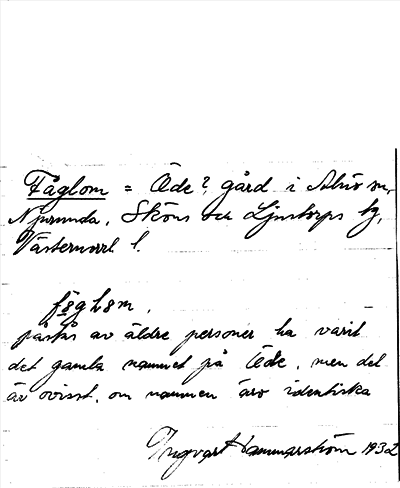 Fåglom = Öde?, gård i Alnö sn,
Njurunda, Sköns och Ljustorps tg,
Västernorrl. l.
påstås av äldre personer ha varit
det gamla namnet på Öde, men det
är ovisst, om namnen äro identiska
Ingvart Hammarström 1932